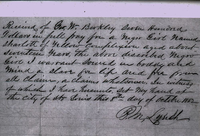 Received of Geo W. Barkley Seven Hundred
Dollars in full pay for a Negro Girl Named
Charlott of Yellow Complexion aged about
Seventeen Years, the above described Negro
Girl I warrant Sound in body and
Mind a Slave for life and free from
all claims, in
of which I have hereunto Set My hand at
the City of St Louis this 8th day of October